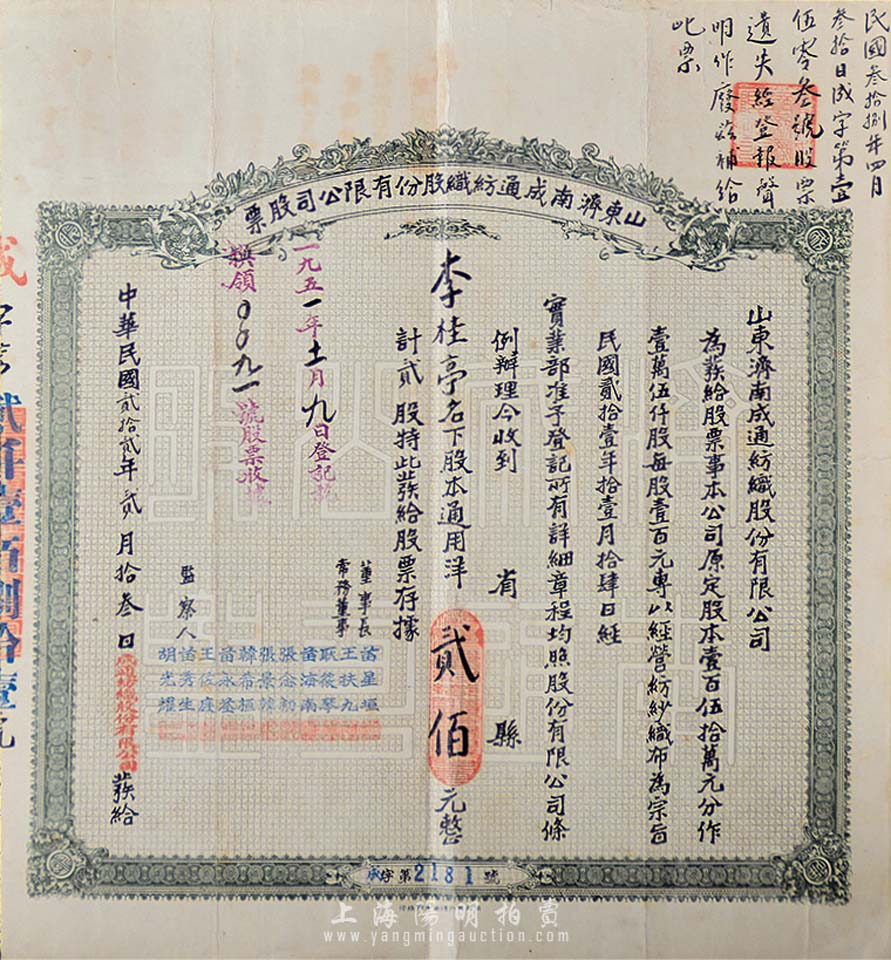 民國叁拾捌年四月
叁拾日成字第壹
伍零叁號股票
遺失經登報聲
明作廢茲補給
此票
山東濟南成通紡織股份有限公司股票
山東濟南成通紡織股份有限公司
為發給股票事本公司原定股本壹百伍拾萬元分作
壹萬伍仟股每股壹百元專以經營紡紗織布為宗旨
民國貳拾壹年拾壹月拾肆日經
實業部准予登記所有詳細章程均照股份有限公司條
例辦理今收到 省 縣
李桂亭名下股本通用洋 貳佰 元整
計貳股特此發給股票存據
董事長
常務董事
苗星垣
王扶九
耿筱琴
苗海南
張念初
張景韓
韓希極
苗永
監察人
王
苗秀生
胡光耀
一九五一年十一月九日登記
換領
91號股票收據
中華民國貳拾貳年貳月拾叁日 成通紡織股份有限公司 發給
成字第2181號
成字第貳仟壹佰捌拾壹號
上海陽明拍賣
www.yangmingauction.com